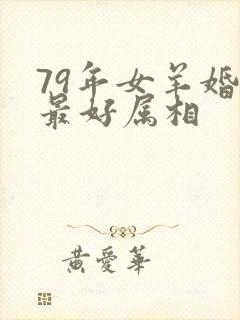 79年女羊婚
最好属相
黄愛華